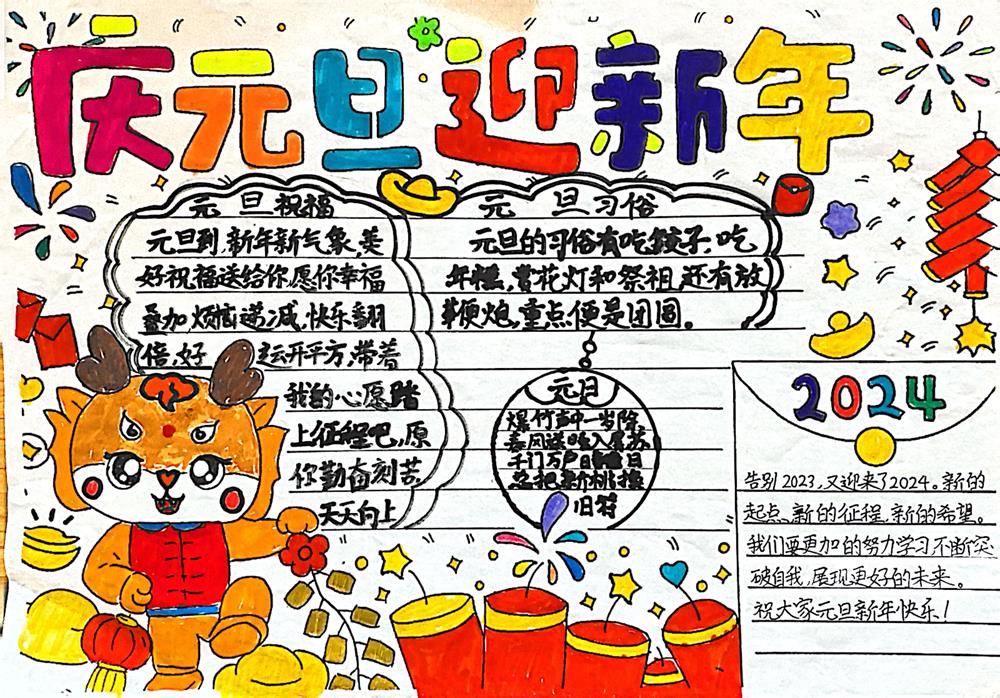 庆元旦迎新年
元旦祝福
元旦到,新年新气象,美
好祝福送给你,愿你幸福
叠加烦恼递减,快乐翻
倍,好运开平方,带着
我的心愿踏
上征程吧,原
你勤奋刻苦
天天向上
元旦习俗
元旦的习俗有吃饺子,吃
年糕,赏花灯和祭祖,还有放
鞭炮,重点便是团圆。
元日
爆竹声中一岁除
春风送暖入屠苏
千门万户曈曈日
总把新桃换
旧符
2024
告别2023,又迎来了2024。新的
起点,新的征程,新的希望。
我们要更加的努力学习不断突
破自我,展现更好的未来。
祝大家元旦新年快乐!